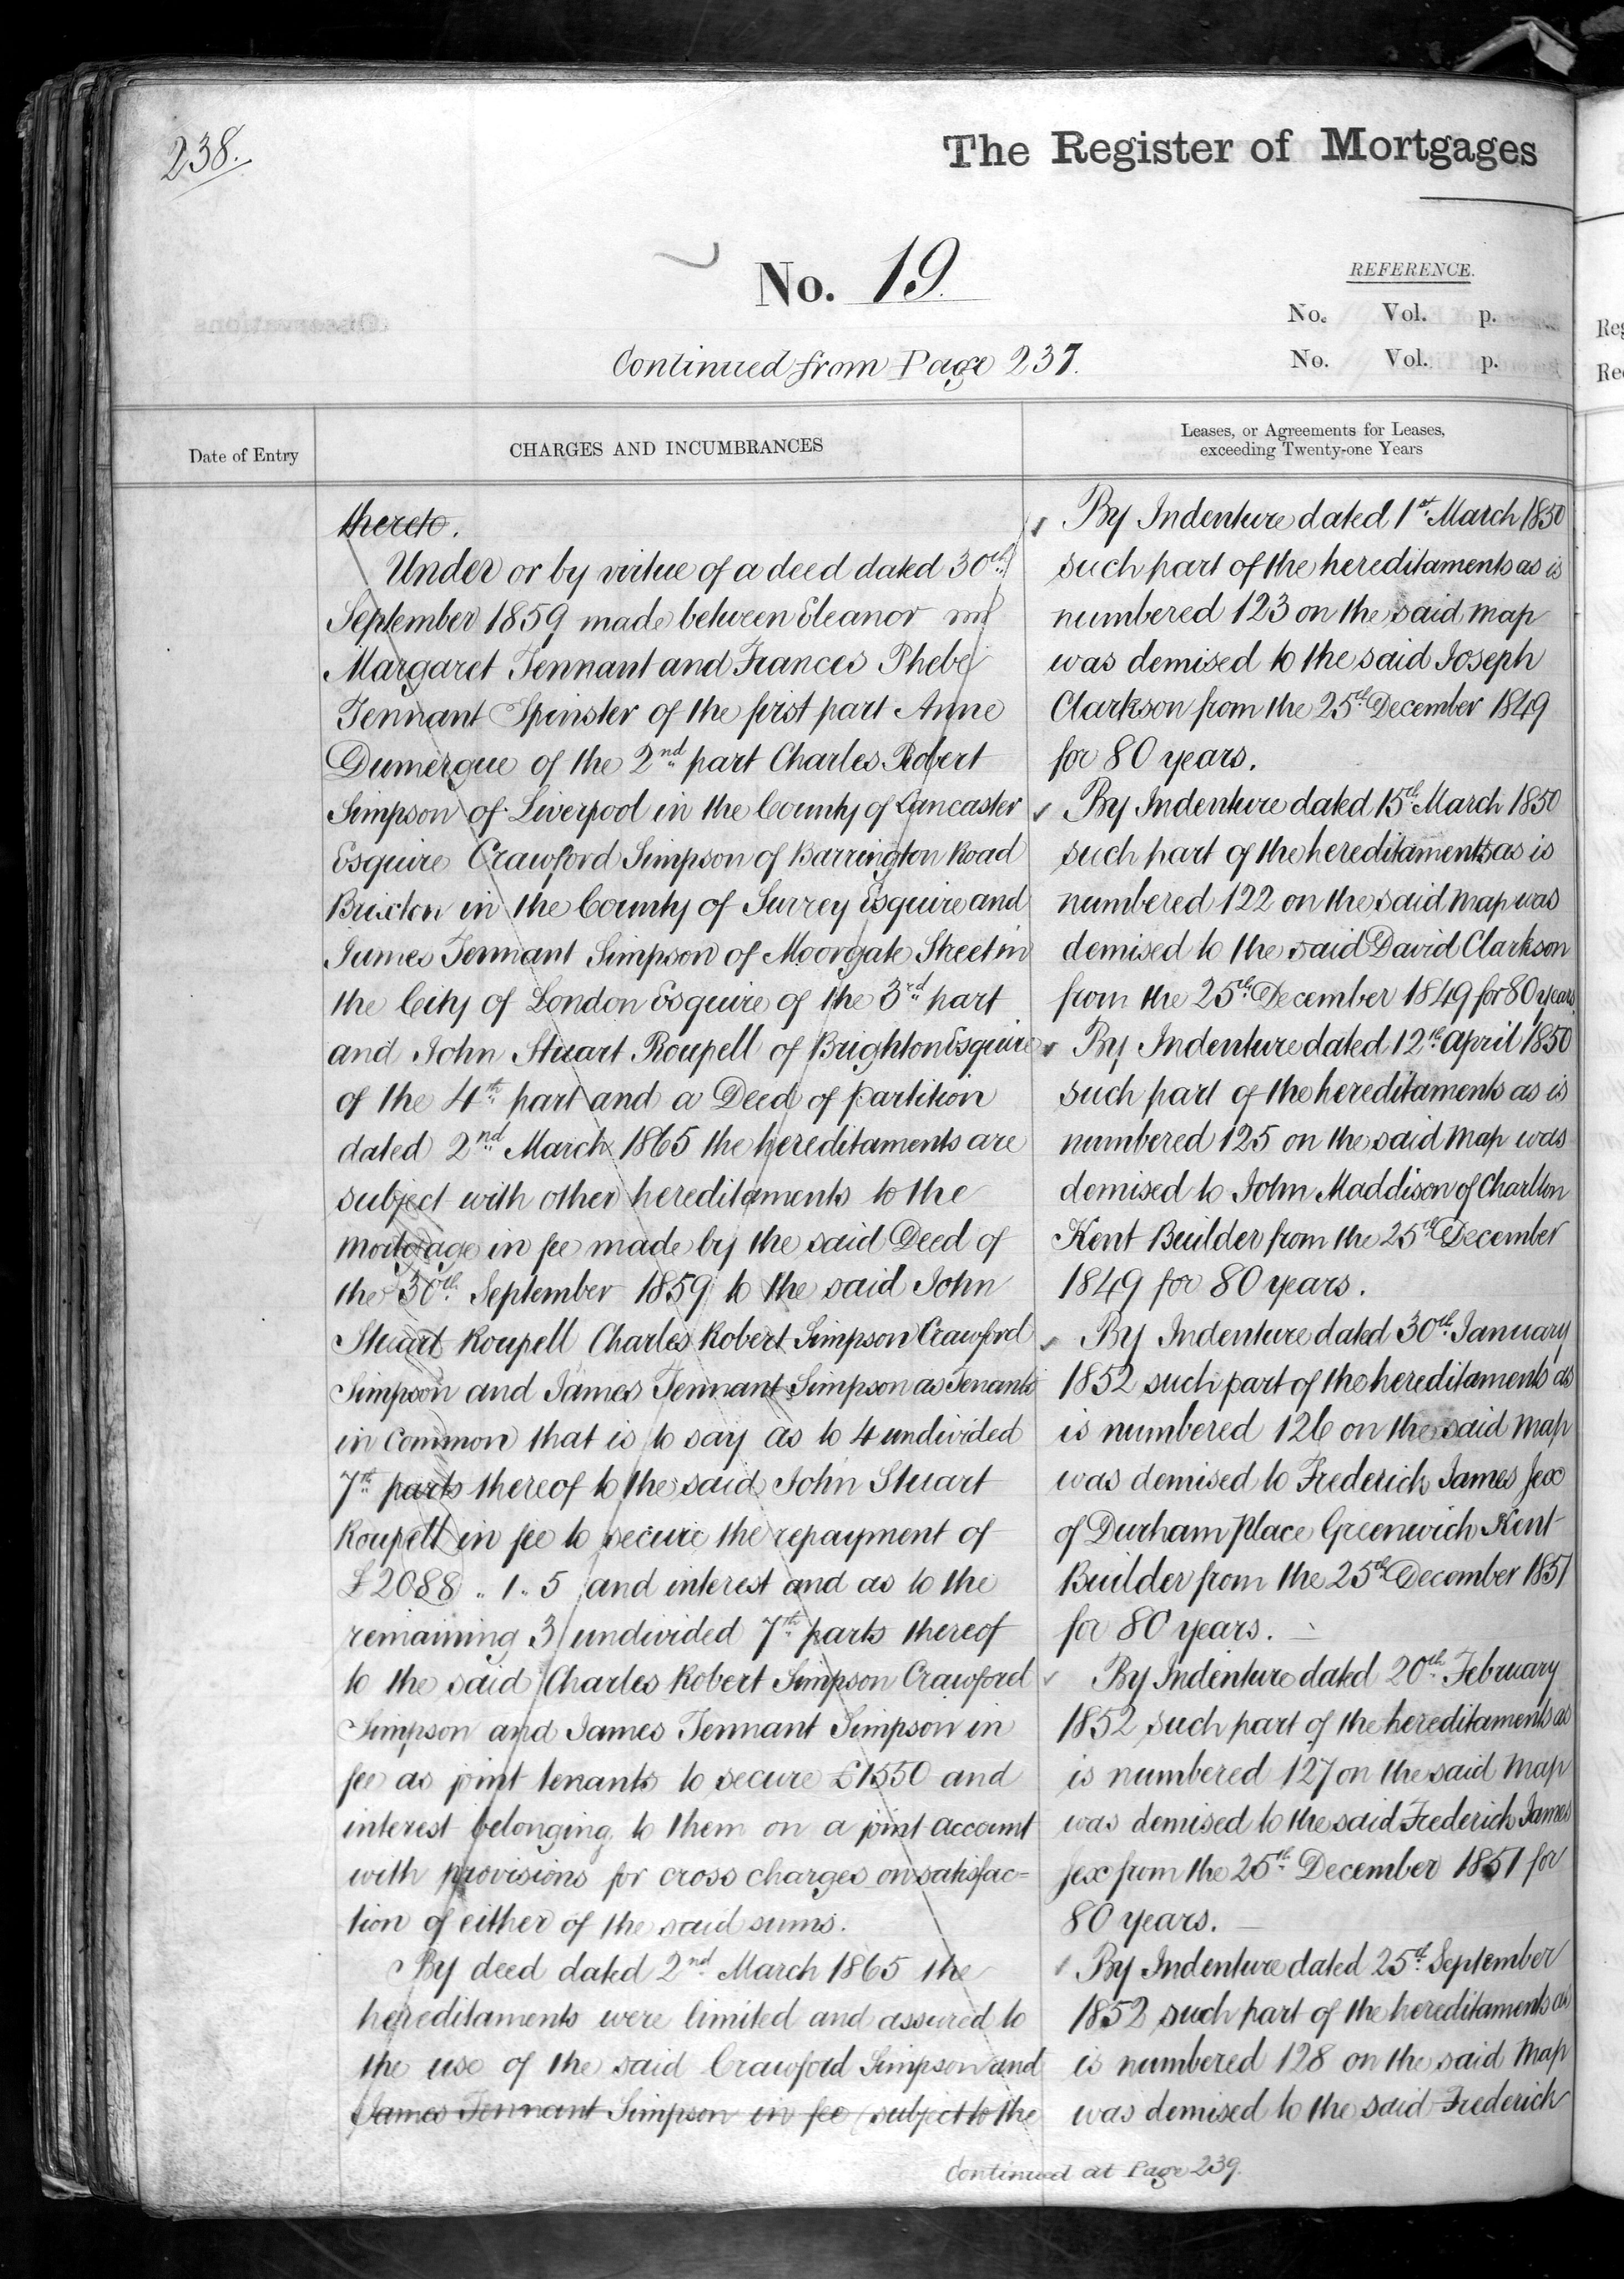 238.
The Register of Mortgages
No. 19.
REFERENCE.
No. Vol. p.
No. Vol. p.
Continued from Page 237.
Date of Entry
CHARGES AND INCUMBRANCES
Leases, or Agreements for Leases,
exceeding Twenty-one Years
thereto.
Under or by virtue of a deed dated 30th
September 1859 made between Eleanor
Margaret Tennant and Frances Phebe
Tennant Spinster of the first part Anne
Dumergue of the 2nd part Charles Robert
Simpson of Liverpool in the County of Lancaster
Esquire Crawford Simpson of Barrington Road
Brixton in the County of Surrey Esquire and
James Tennant Simpson of Moorgate Street in
the City of London Esquire of the 3rd part
and John Stuart Roupell of Brighton Esquire
of the 4th part and a Deed of partition
dated 2nd March 1865 the hereditaments are
subject with other hereditaments to the
mortgage in fee made by the said Deed of
the 30th September 1859 to the said John
Stuart Roupell Charles Robert Simpson Crawford
Simpson and James Tennant Simpson as Tenants
in common that is to say as to 4 undivided
7th parts thereof to the said John Stuart
Roupell in fee to secure the repayment of
£2088 .. 1 .. 5 and interest and as to the
remaining 3 undivided 7th parts thereof
to the said Charles Robert Simpson Crawford
Simpson and James Tennant Simpson in
fee as joint tenants to secure £1550 and
interest belonging to them on a joint account
with provisions for cross charges on satisfac=
tion of either of the said sums.
By deed dated 2nd March 1865 the
hereditaments were limited and assured to
the use of the said Crawford Simpson and
James Tennant Simpson in fee subject to the
By Indenture dated 1st March 1850
such part of the hereditaments as is
numbered 123 on the said map
was demised to the said Joseph
Clarkson from the 25th December 1849
for 80 years.
By Indenture dated 15th March 1850
such part of the hereditaments as is
numbered 122 on the said map was
demised to the said David Clarkson
from the 25th December 1849 for 80 years.
By Indenture dated 12th April 1850
such part of the hereditaments as is
numbered 125 on the said map was
demised to John Maddison of Charlton
Kent Builder from the 25th December
1849 for 80 years.
By Indenture dated 30th January
1852 such part of the hereditaments as
is numbered 126 on the said map
was demised to Frederich James Jex
of Durham place Greenwich Kent
Builder from the 25th December 1851
for 80 years.
By Indenture dated 20th February
1852 such part of the hereditaments as
is numbered 127 on the said map
was demised to the said Frederich James
Jex from the 25th December 1851 for
80 years.
By Indenture dated 25th September
1852 such part of the hereditaments as
is numbered 128 on the said map
was demised to the said Frederich
Continued at Page 239.